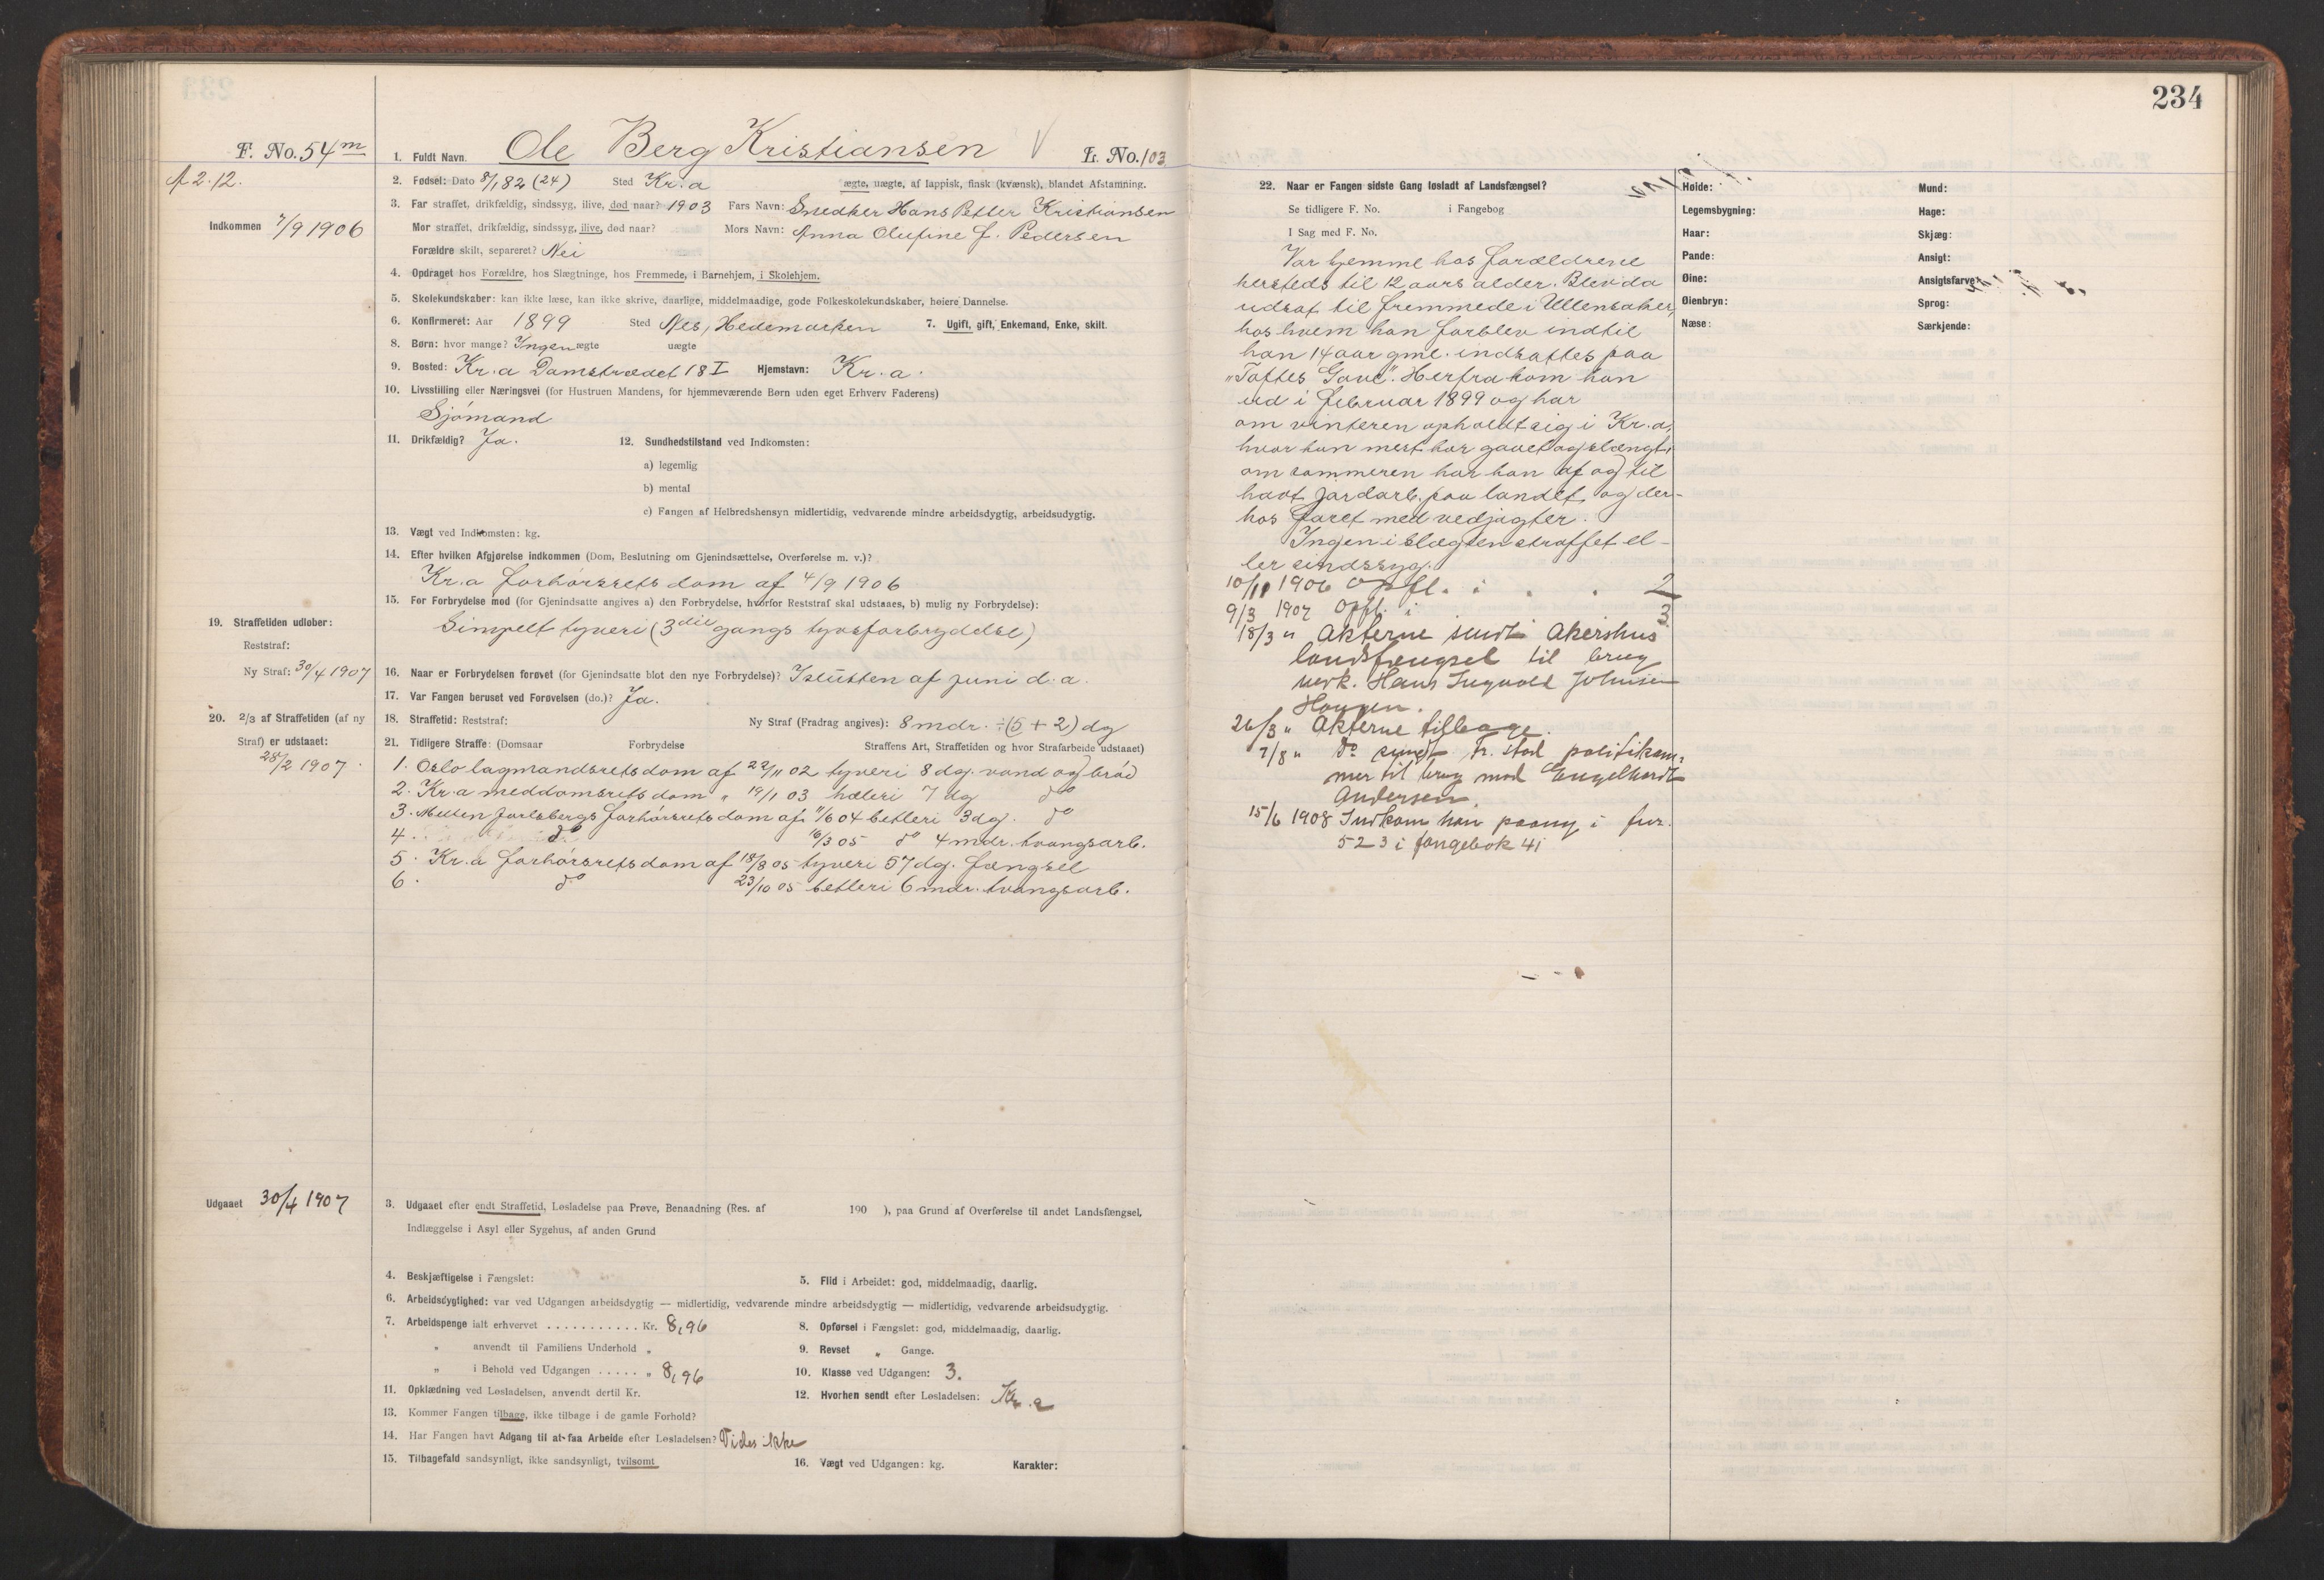 234
F. No. 54 m
A 2.12.
Indkommen 7/9 1906
19. Straffetiden udløber:
Reststraf:
Ny Straf: 30/4 1907
20. 2/3 af Straffetiden (af ny
Straf) er udstaaet:
28/2 1907.
Udgaaet 30/4 1907
1. Fuldt Navn. Ole Berg Kristiansen V L. No. 103
2. Fødsel: Dato 8/1 82 (24) Sted Kr.a ægte, uægte, af lappisk, finsk (kvænsk), blandet Afstamning.
3. Far straffet, drikfældig, sindssyg, ilive, død naar? 1903 Fars Navn: Snedker Hans Petter Kristiansen
Mor straffet, drikfældig, sindssyg, ilive, død naar? Mors Navn: Anna Olufine f. Pedersen
Forældre skilt, separeret? Nei
4. Opdraget hos Forældre, hos Slægtninge, hos Fremmede, i Barnehjem, i Skolehjem.
5. Skolekundskaber: kan ikke læse, kan ikke skrive, daarlige, middelmaadige, gode Folkeskolekundskaber, høiere Dannelse.
6. Konfirmeret: Aar 1899 Sted Nes, Hedemarken 7. Ugift, gift, Enkemand, Enke, skilt.
8. Børn: hvor mange? Ingen ægte uægte
9. Bosted: Kr.a Damstrædet 18 I Hjemstavn: Kr.a.
10. Livsstilling eller Næringsvei (for Hustruen Mandens, for hjemmeværende Børn uden eget Erhverv Faderens)
Sjømand
11. Drikfældig? Ja. 12. Sundhedstilstand ved Indkomsten:
a) legemlig
b) mental
c) Fangen af Helbredshensyn midlertidig, vedvarende mindre arbeidsdygtig, arbeidsudygtig.
13. Vægt ved Indkomsten: kg.
14. Efter hvilken Afgjørelse indkommen (Dom, Beslutning om Gjenindsættelse, Overførelse m. v.)?
Kr.a forhørsrets dom af 4/9 1906
15. For Forbrydelse mod (for Gjenindsatte angives a) den Forbrydelse, hvorfor Reststraf skal udstaaes, b) mulig ny Forbrydelse):
Simpelt tyveri (3die gangs tyvsforbrydelse)
16. Naar er Forbrydelsen forøvet (for Gjenindsatte blot den nye Forbrydelse)? I slutten af juni d. a.
17. Var Fangen beruset ved Forøvelsen (do.)? Ja.
18. Straffetid: Reststraf: Ny Straf (Fradrag angives): 8 mdr. ÷ (5 + 2) dg
21. Tidligere Straffe: (Domsaar Forbrydelse Straffens Art, Straffetiden og hvor Strafarbeide udstaaet)
1. Oslo lagmandsrets dom af 22/11 02 tyveri 8 dg. vand og brød
2. Kr.a meddomsrets dom " 19/1 03 hæleri 7 dg do
3. Mellem Jarlsbergs forhørsrets dom af 11/6 04 betleri 3 dg. do
4. do 16/3 05 do 4 mdr. tvangsarb.
5. Kr.a forhørsrets dom af 18/8 05 tyveri 57 dg. fængsel
6. do 23/10 05 betleri 6 mdr. tvangsarb.
3. Udgaaet efter endt Straffetid, Løsladelse paa Prøve, Benaadning (Res. af 190 ), paa Grund af Overførelse til andet Landsfængsel,
Indlæggelse i Asyl eller Sygehus, af anden Grund
4. Beskjæftigelse i Fængslet: 5. Flid i Arbeidet: god, middelmaadig, daarlig.
6. Arbeidsdygtighed: var ved Udgangen arbeidsdygtig — midlertidig, vedvarende mindre arbeidsdygtig — midlertidig, vedvarende arbeidsudygtig.
7. Arbeidspenge ialt erhvervet ........... Kr. 8,96 8. Opførsel i Fængslet: god, middelmaadig, daarlig.
" anvendt til Familiens Underhold " 9. Revset " Gange.
" i Behold ved Udgangen ..... " 8,96 10. Klasse ved Udgangen: 3.
11. Opklædning ved Løsladelsen, anvendt dertil Kr. 12. Hvorhen sendt efter Løsladelsen: Kr.a
13. Kommer Fangen tilbage, ikke tilbage i de gamle Forhold?
14. Har Fangen havt Adgang til at faa Arbeide efter Løsladelsen? Vides ikke
15. Tilbagefald sandsynligt, ikke sandsynligt, tvilsomt 16. Vægt ved Udgangen: kg. Karakter:
22. Naar er Fangen sidste Gang løsladt af Landsfængsel?
Se tidligere F. No. i Fangebog
I Sag med F. No.
Var hjemme hos forældrene
hersteds til 12 aars alder. Blev da
udsat til fremmede i Ullensaker,
hos hvem han forblev indtil
han 14 aar gml. indsattes paa
"Toftes Gave". Herfra kom han
ud i februar 1899 og har
om vinteren opholdt sig i Kr.a,
hvor han mest har gaaet og slængt;
om sommeren har han af og til
havt jordarb. paa landet og der-
hos faret med vedjagter.
Ingen i slægten straffet el-
ler sindssyg.
10/11 1906 Opfl. i . . 2
9/3 1907 Opfl. i 3
18/3 " Akterne sendt Akershus
landsfængsel til brug
vedk. Hans Ingvald Johnsen
Haugen.
26/3 " Akterne tilbage.
7/8 " Do sendt Fr. stad politikam-
mer til brug mod Engelhardt
Andersen.
15/6 1908 Indkom han paany i fnr.
523 i fangebok 41
Høide:
Legemsbygning:
Haar:
Pande:
Øine:
Øienbryn:
Næse:
Mund:
Hage:
Skjæg:
Ansigt:
Ansigtsfarve:
Sprog:
Særkjende: